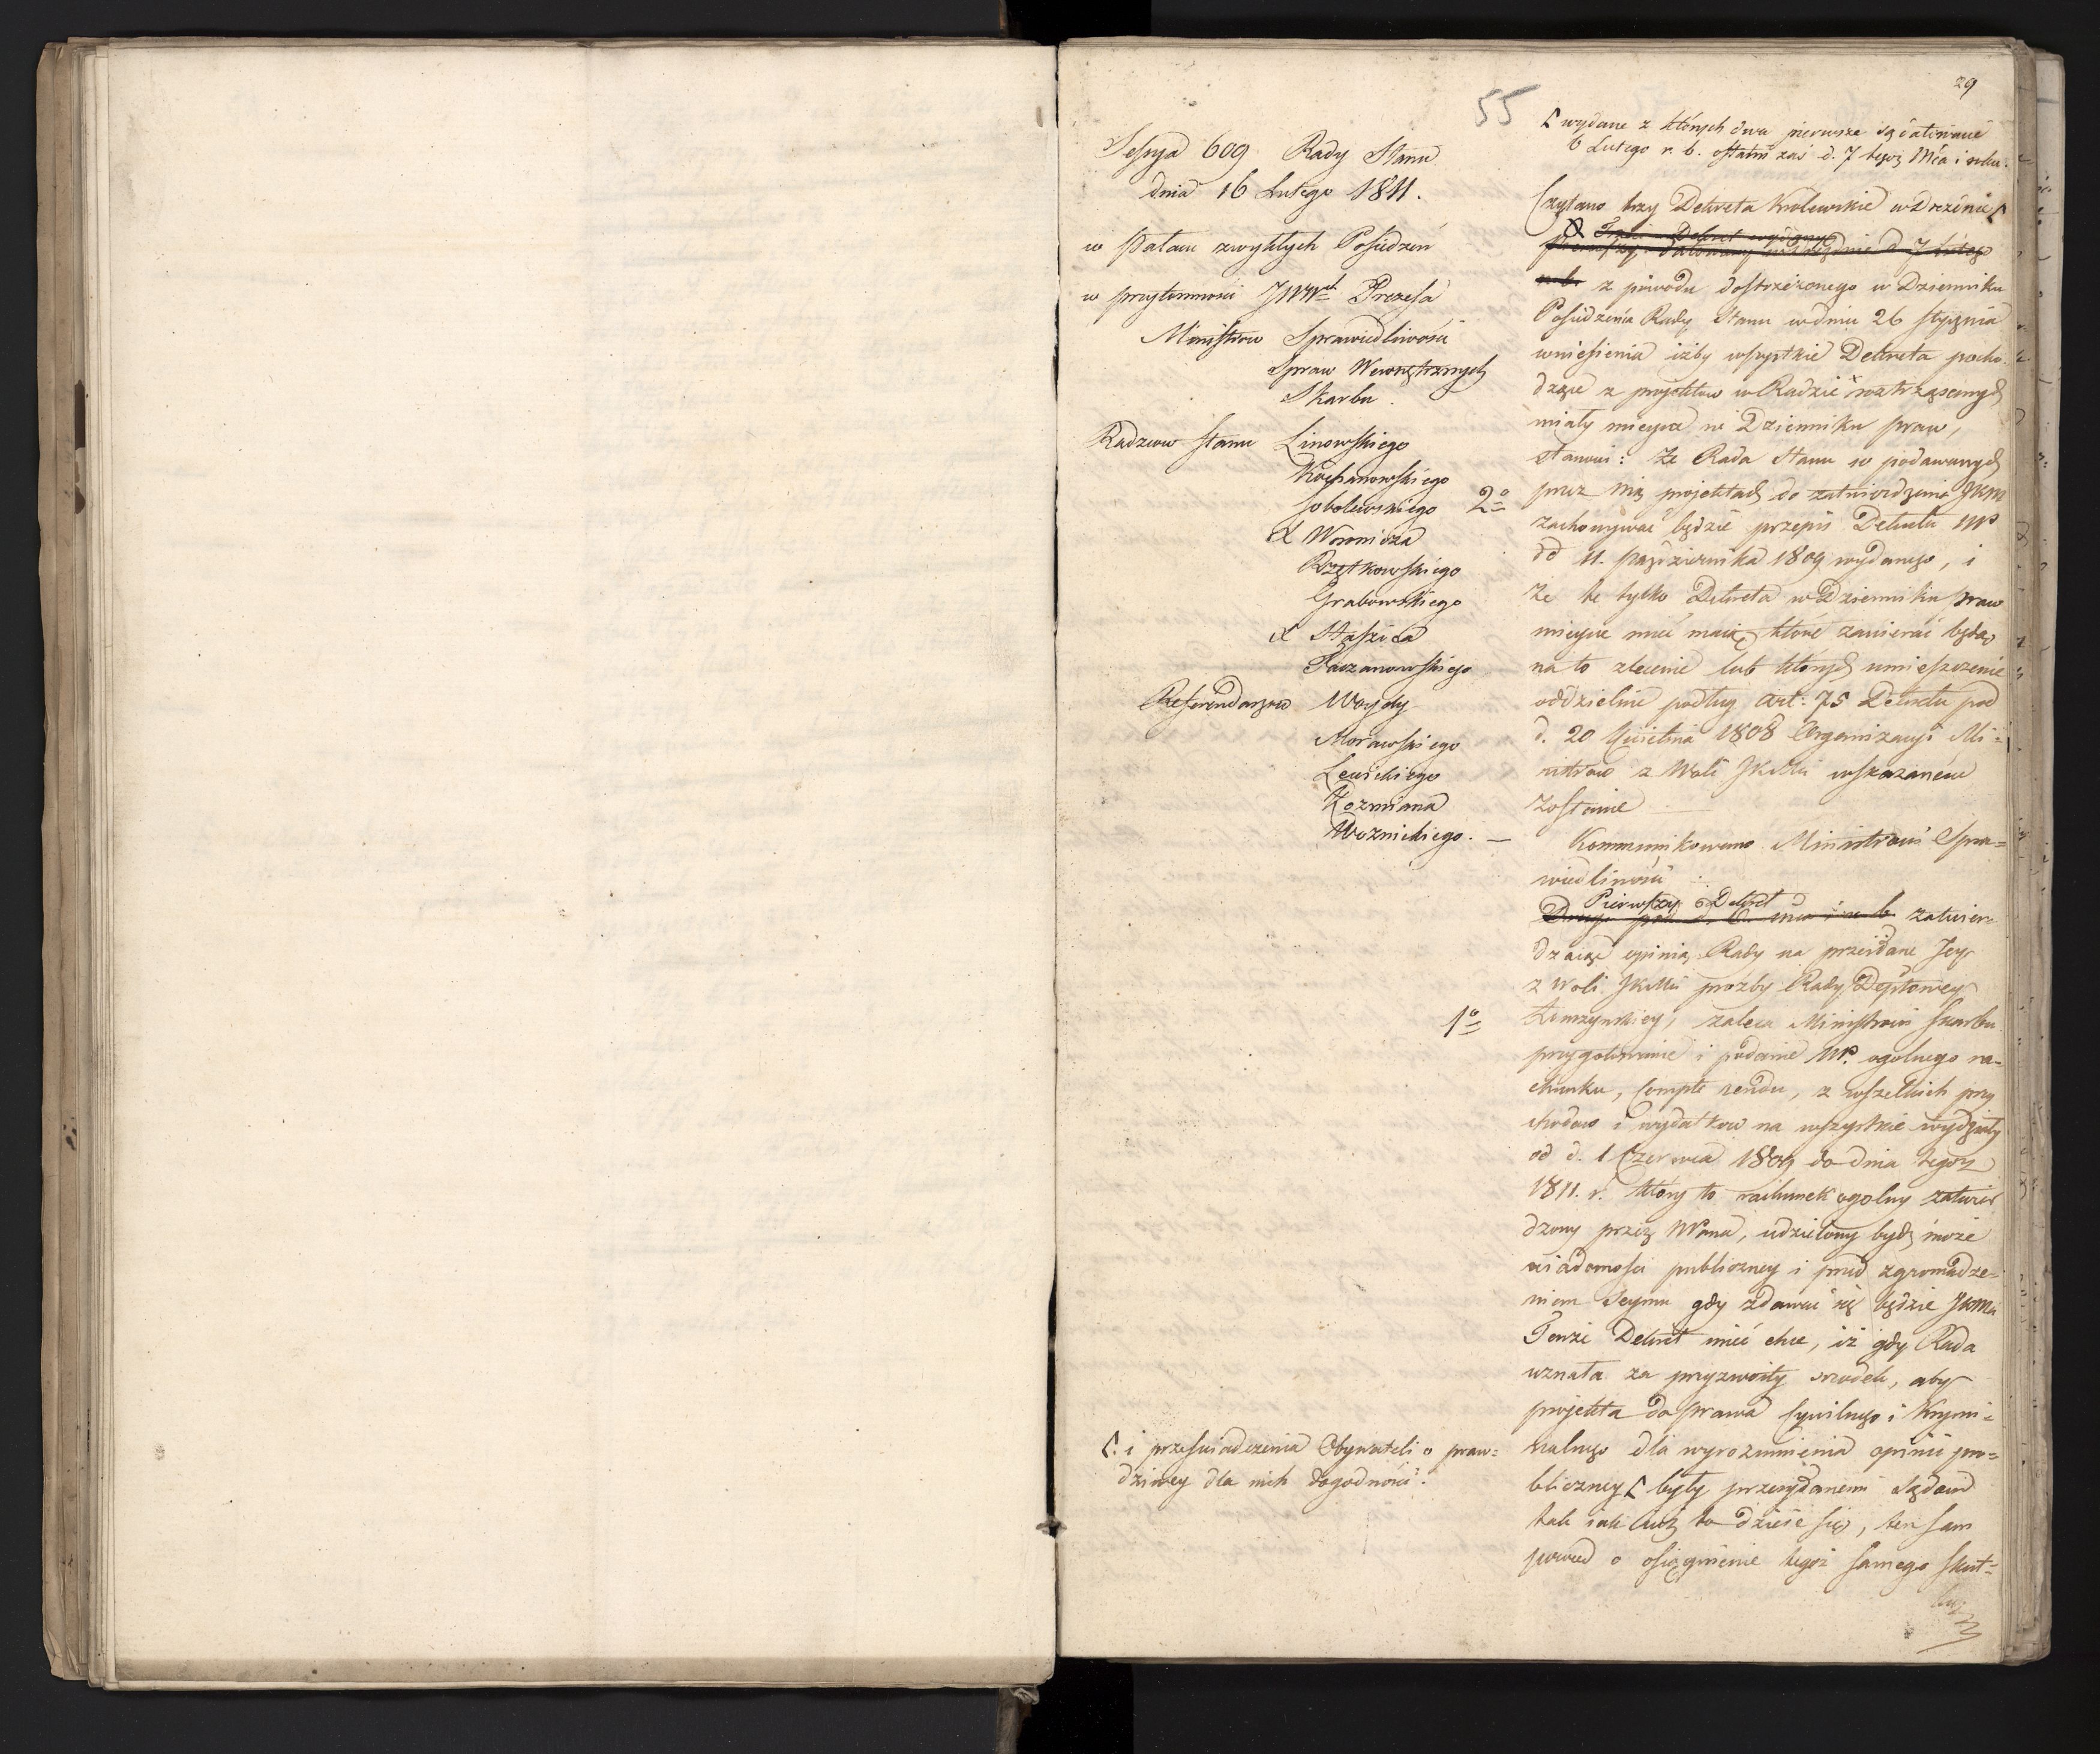 29
55
Sessya 609 Rady Stanu
dnia 16 Lutego 1811.
w Pałacu zwykłych Posiedzeń
w przytomności JWW Prezesa
Ministrow Sprawiedliwości
Spraw Wewnętrznych
Skarbu
Radzcow Stanu Linowskiego
Kochanowskiego
Sobolewskiego
x Woznicza
Rzętkowskiego
Grabowskiego
x Staszica
Taczanowskiego
Referendarzow Woydy
Morawskiego
Lewickiego
Kozmiana
Woznickiego. —
wydane z których dwa pierwsze są datowane
6 Lutego r. b. ostatni zaś d. 7 tegoż Mca i roku.
Czytano trzy Dekreta Krolewskie w Dreźnie
Trzeci Dekret wydany
z powodu dostrzeżonego w Dzienniku
Posiedzenia Rady Stanu w dniu 26 stycznia
wniesienia iżby wszystkie Dekreta pocho-
dzące z projektow w Radzie roztrząsanych
miały mieysce w Dzienniku praw,
stanowi: że Rada Stanu w podawanych
2o przez nią projektach do zatwierdzenia JKM
zachowywać będzie przepis Dekretu
dd 11. Października 1809 wydanego, i
że te tylko Dekreta w Dzienniku praw
mieysce mieć maią, które zawierać będą
na to zlecenie lub których umieszczenie
oddzielnie podług art: 75 Dekretu pod
d. 20 Kwietnia 1808 Organizacyi Mi-
nistrow z Woli JKMci wskazanem
zostanie —
Kommunikowano Ministrowi Spra=
wiedliwości
Pierwszy Dekret
Drugi pod d. 6. mca i r. b. zatwier-
dzaiąc opinią Rady na przesłane Jey
z Woli JKMci prozby Rady Deptowey
1o Łomżyńskiey, zaleca Ministrowi Skarbu
przygotowanie i podanie ogolnego ra-
chunku, Compte rendu, z wszelkich przy
chodow i wydatkow na wszystkie wydziały
od d. 1 Czerwca 1809 do dnia tegoż
1811. r. który to rachunek ogolny zatwier
dzony przez Pana, udzielony bydz może
wiadomości publiczney i przed zgromadze-
niem Seymu gdy zdawać się będzie JKMci
Tenże Dekret mieć chce, iż gdy Rada
uznała za przyzwoity srodek, aby
projekta do prawa Cywilnego i Krymi-
nalnego dla wyrozumienia opinii pu=
bliczney były przesyłanemi Sądom
tak jak iuż to dzieie się, ten sam
powod o osiągnienie tegoż samego skut=
i przeświadczenia Obywateli o praw=
dziwey dla nich dogodności.